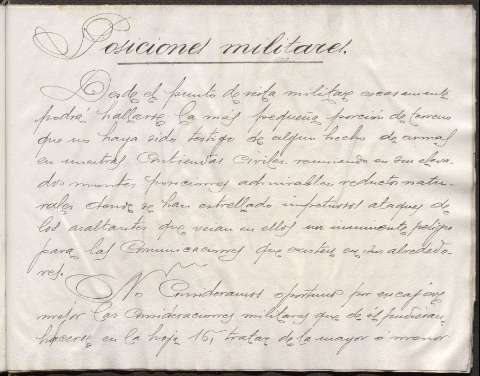 Posiciones militares.
Desde el punto de vista militar escasamente
podrá hallarse la más pequeña porción de terreno
que no haya sido testigo de algun hecho de armas
en nuestras contiendas civiles reuniendo en sus eleva-
dos montes posiciones admirables reductos natu-
rales donde se han estrellado impetuosos ataques de
los asaltantes que veian en ellos un inminente peligro
para las comunicaciones que existen en sus alrededo-
res.
No consideramos oportuno por encajar
mejor las consideraciones militares que de él pudieran
hacerse en la hoja 16, tratar de la mayor ó menor